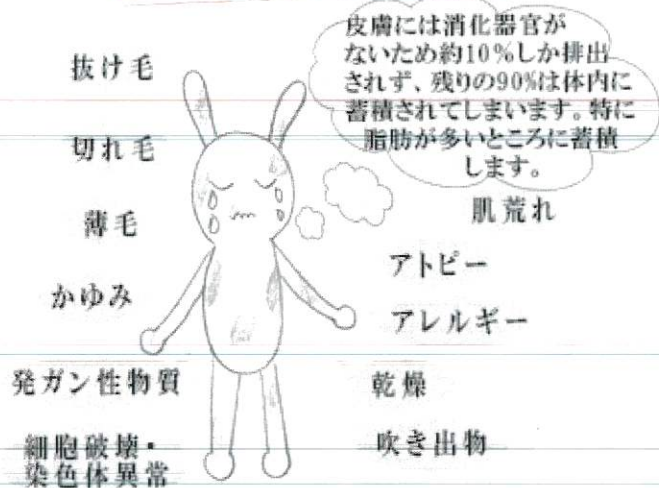 皮膚には消化器官が
ないため約10%しか排出
されず、残りの90%は体内に
蓄積されてしまいます。特に
脂肪が多いところに蓄積
します。
抜け毛
切れ毛
薄毛
かゆみ
発ガン性物質
細胞破壊・
染色体異常
肌荒れ
アトピー
アレルギー
乾燥
吹き出物